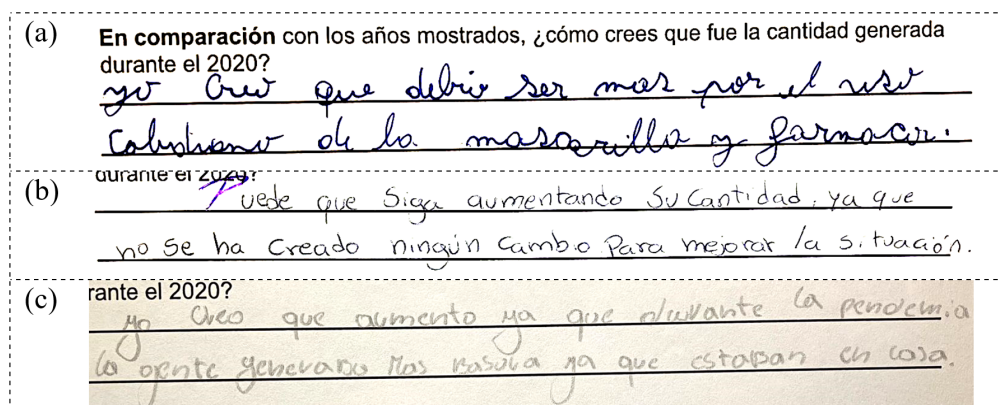 (a)
En comparación con los años mostrados, ¿cómo crees que fue la cantidad generada
durante el 2020?
yo creo que debio ser mas por el uso
de la mascarilla y
(b)
durante el 2020?
Puede que siga aumentando su cantidad, ya que
no se ha creado ningún cambio para mejorar la situación.
(c)
rante el 2020?
yo creo que aumento ya que durante la pendemia
la gente generaba mas basura ya que estaban en casa.